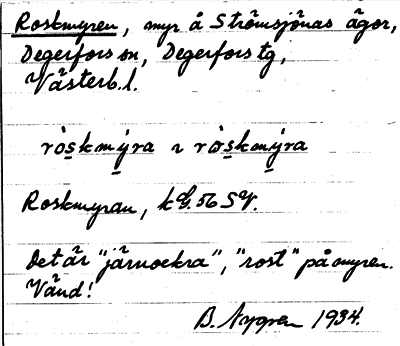 Roskmyren, myr å Strömsjönäs ägor,
Degerfors sn, Degerfors tg,
Västerb. l.
ròskmýra ɿ ròskmýra
Roskmyran, k G. 56 SV.
Det är "järnockra", "rost" på myren.
Vänd!
B. Nygren 1934.